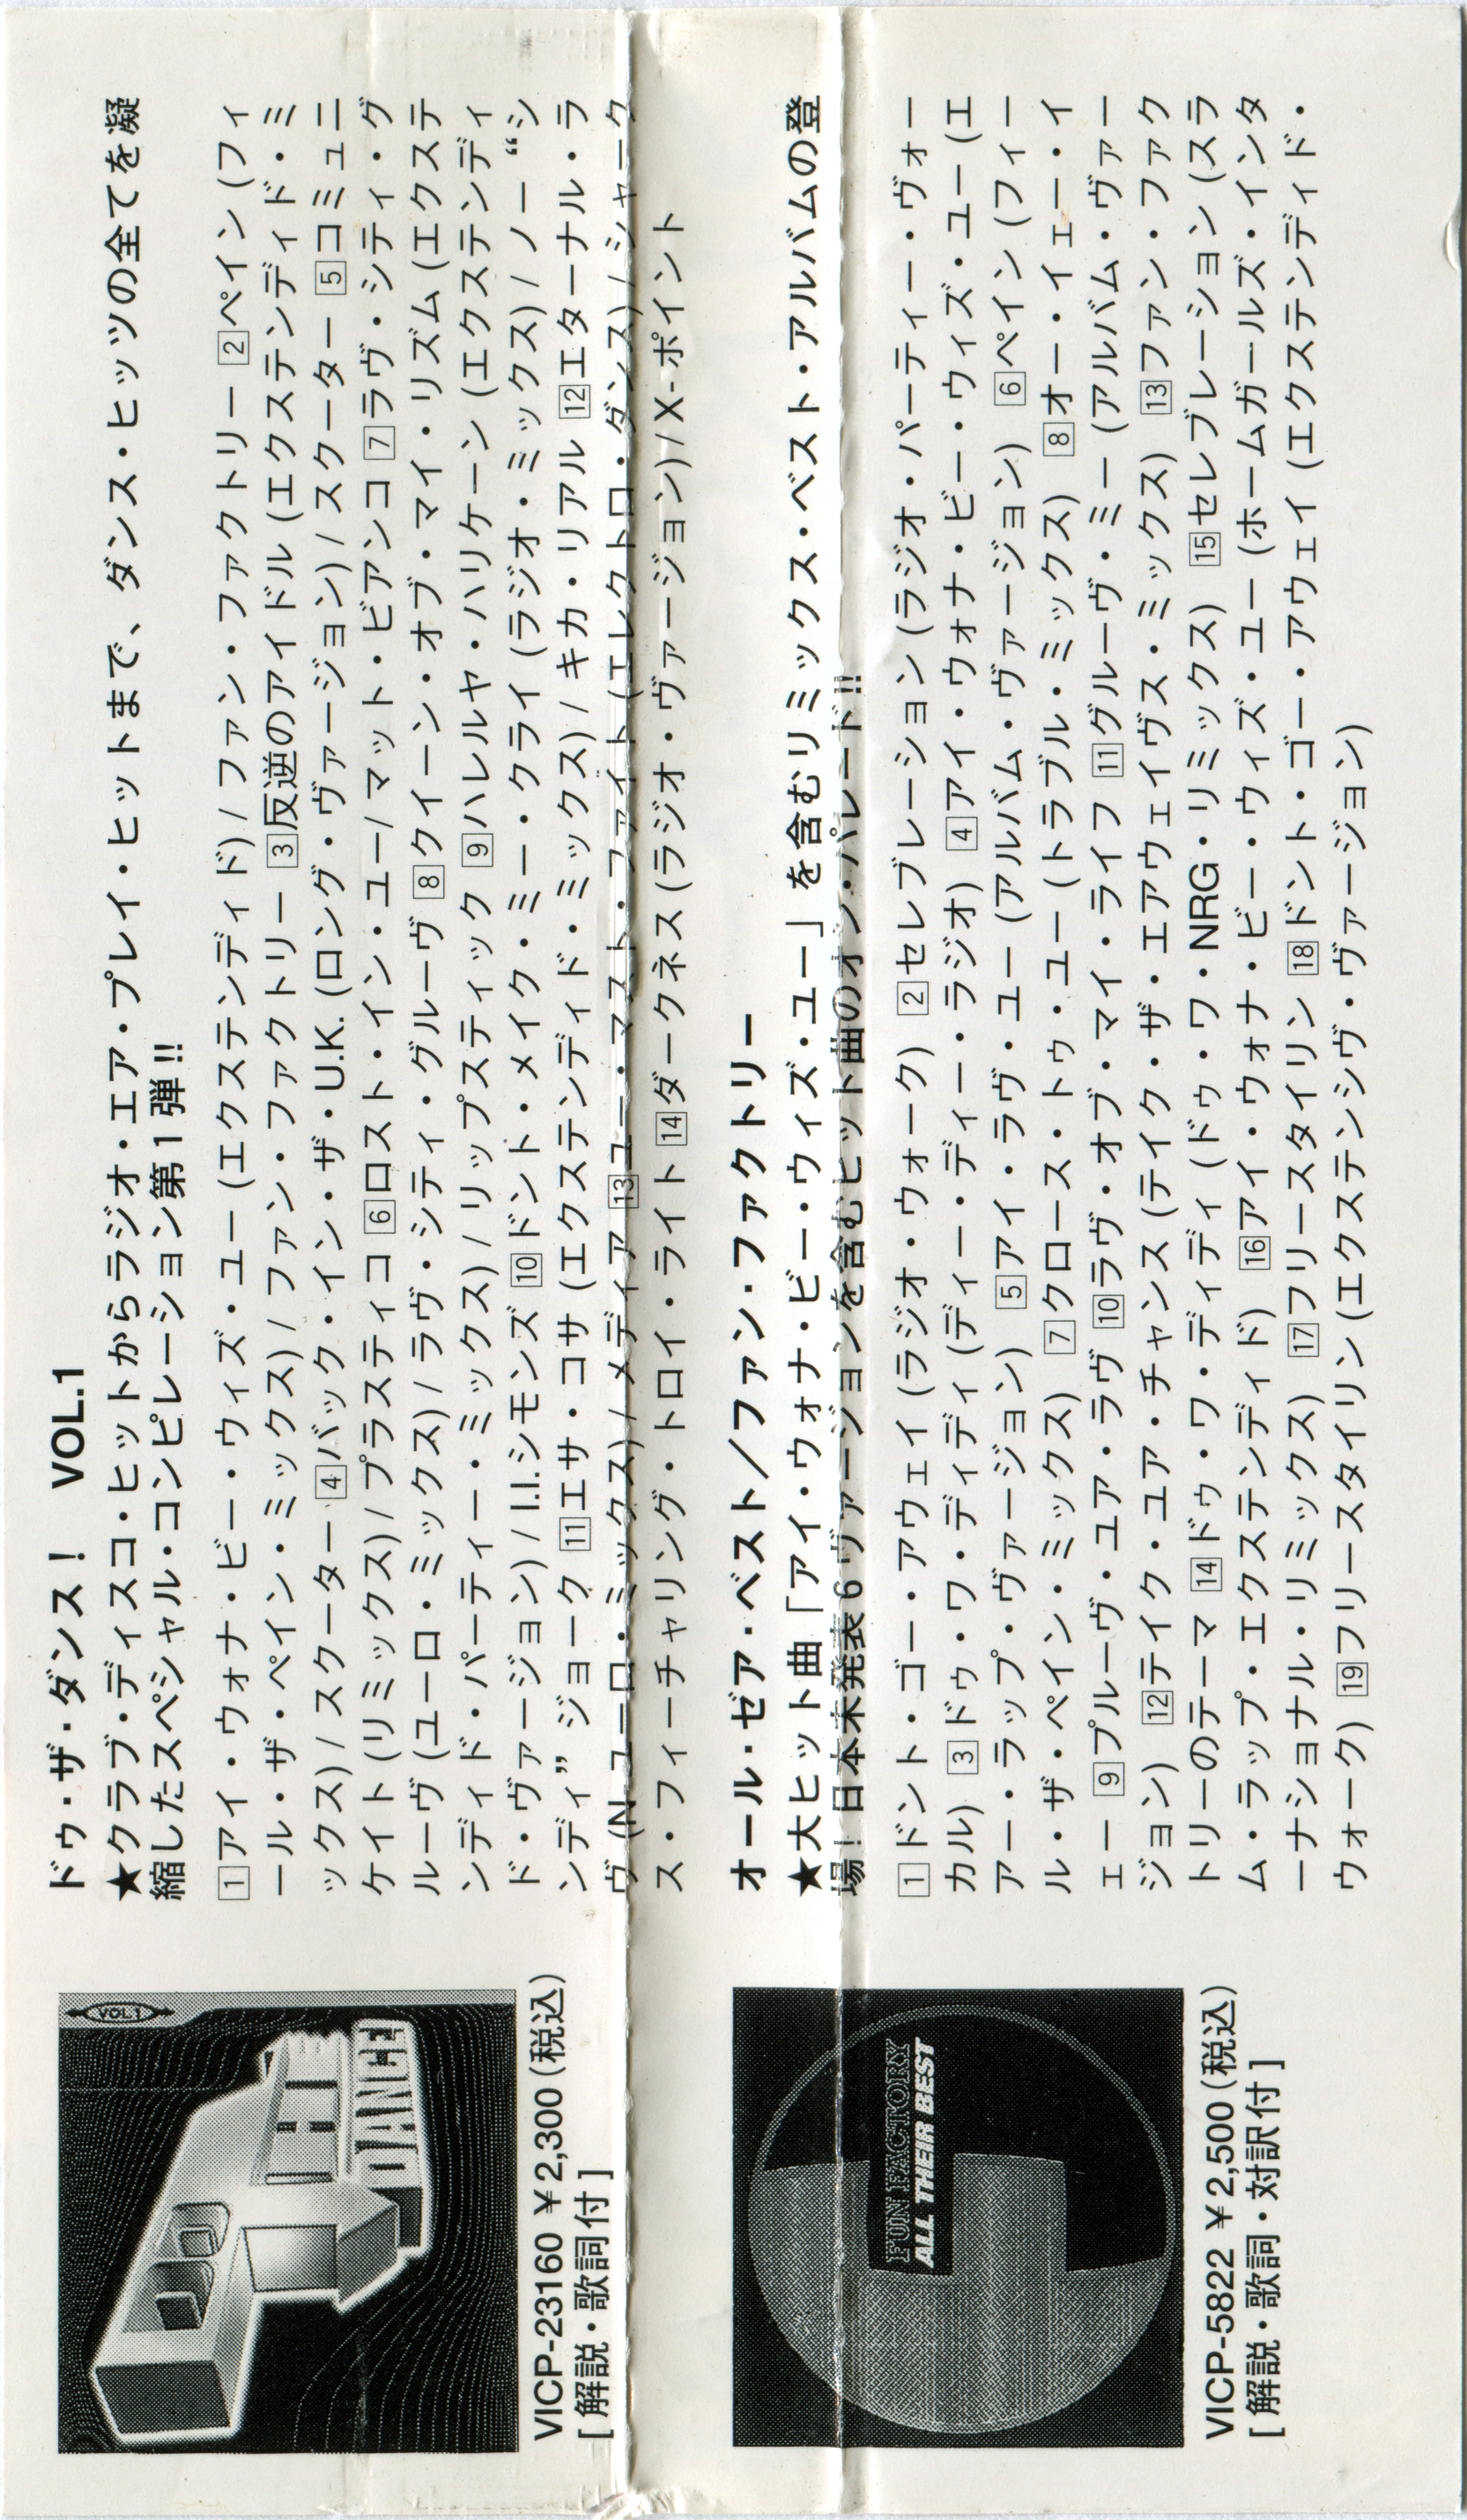 ドゥ・ザ・ダンス！　VOL.1
★クラブ・ディスコ・ヒットからラジオ・エア・プレイ・ヒットまで、ダンス・ヒッツの全てを凝
縮したスペシャル・コンピレーション第1弾!!
1アイ・ウォナ・ビー・ウィズ・ユー (エクステンディド) / ファン・ファクトリー 2ペイン (フィ
ール・ザ・ペイン・ミックス) / ファン・ファクトリー 3反逆のアイドル (エクステンディド・ミ
ックス) / スクーター 4バック・イン・ザ・U.K. (ロング・ヴァージョン) / スクーター 5コミュニ
ケイト (リミックス) / プラスティコ 6ロスト・イン・ユー/ マット・ビアンコ 7ラヴ・シティ・グ
ルーヴ (ユーロ・ミックス) / ラヴ・シティ・グルーヴ 8クイーン・オブ・マイ・リズム (エクステ
ンディド・パーティー・ミックス) / リップスティック 9ハレルヤ・ハリケーン (エクステンディ
ド・ヴァージョン) / I.I.シモンズ 10ドント・メイク・ミー・クライ (ラジオ・ミックス) / ノー “シ
ンディ” ジョーク 11エサ・コサ (エクステンディド・ミックス) / キカ・リアル 12エターナル・ラ
ヴ (N-ユーロ・ミックス) / メディア 13ユー・マスト・ファイト (エレクトロ・ダンス) / シャーク
ス・フィーチャリング・トロイ・ライト 14ダークネス (ラジオ・ヴァージョン) / X-ポイント
VICP-23160 ￥2,300 (税込)
[ 解説・歌詞付 ]
VOL 1
DANCE
オール・ゼア・ベスト／ファン・ファクトリー
★大ヒット曲「アイ・ウォナ・ビー・ウィズ・ユー」を含むリミックス・ベスト・アルバムの登
場！日本未発表6ヴァージョンを含むヒット曲のオン・パレード!!
1ドント・ゴー・アウェイ (ラジオ・ウォーク) 2セレブレーション (ラジオ・パーティー・ヴォー
カル) 3ドゥ・ワ・ディディ (ディー・ディー・ラジオ) 4アイ・ウォナ・ビー・ウィズ・ユー (エ
アー・ラップ・ヴァージョン) 5アイ・ラヴ・ユー (アルバム・ヴァージョン) 6ペイン (フィー
ル・ザ・ペイン・ミックス) 7クロース・トゥ・ユー (トラブル・ミックス) 8オー・イェー・イ
ェー 9プルーヴ・ユア・ラヴ 10ラヴ・オブ・マイ・ライフ 11グルーヴ・ミー (アルバム・ヴァー
ジョン) 12テイク・ユア・チャンス (テイク・ザ・エアウェイヴス・ミックス) 13ファン・ファク
トリーのテーマ 14ドゥ・ワ・ディディ (ドゥ・ワ・NRG・リミックス) 15セレブレーション (スラ
ム・ラップ・エクステンディド) 16アイ・ウォナ・ビー・ウィズ・ユー (ホームガールズ・インタ
ーナショナル・リミックス) 17フリースタイリン 18ドント・ゴー・アウェイ (エクステンディド・
ウォーク) 19フリースタイリン (エクステンシヴ・ヴァージョン)
FUN FACTORY
ALL THEIR BEST
VICP-5822 ￥2,500 (税込)
[ 解説・歌詞・対訳付 ]